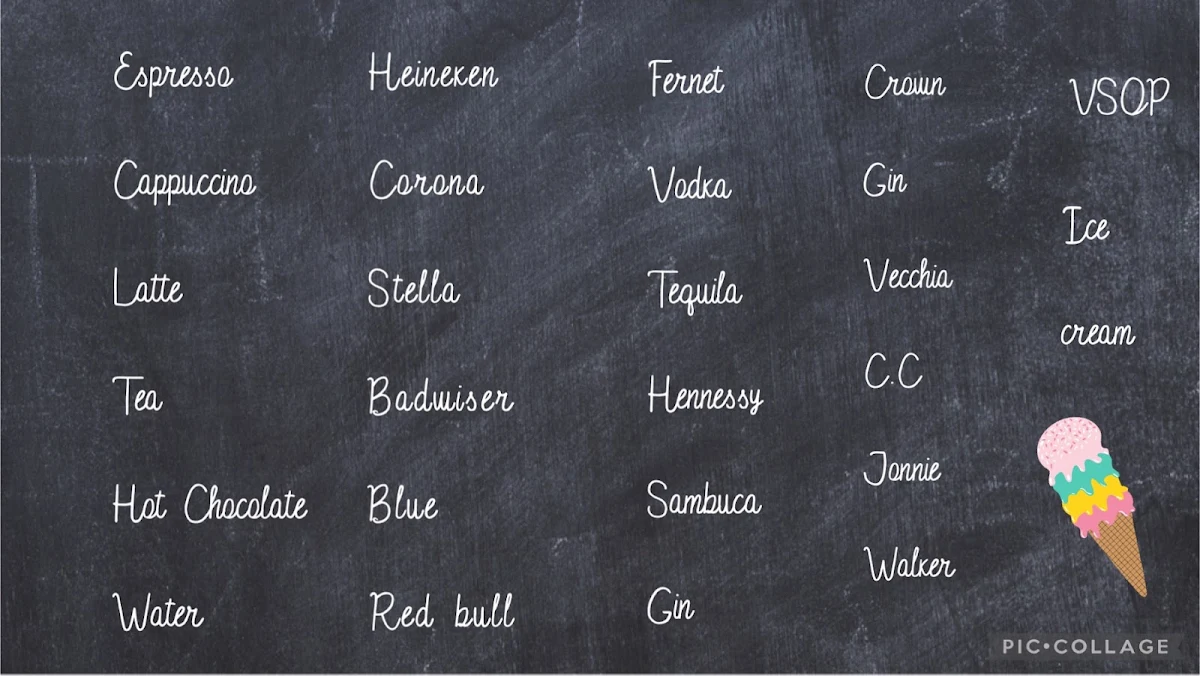 Espresso
Cappuccino
Latte
Tea
Hot Chocolate
Water
Heineken
Corona
Stella
Badwiser
Blue
Red bull
Fernet
Vodka
Tequila
Hennessy
Sambuca
Gin
Crown
Gin
Vecchia
C.C
Jonnie
Walker
VSOP
Ice
cream
PIC•COLLAGE